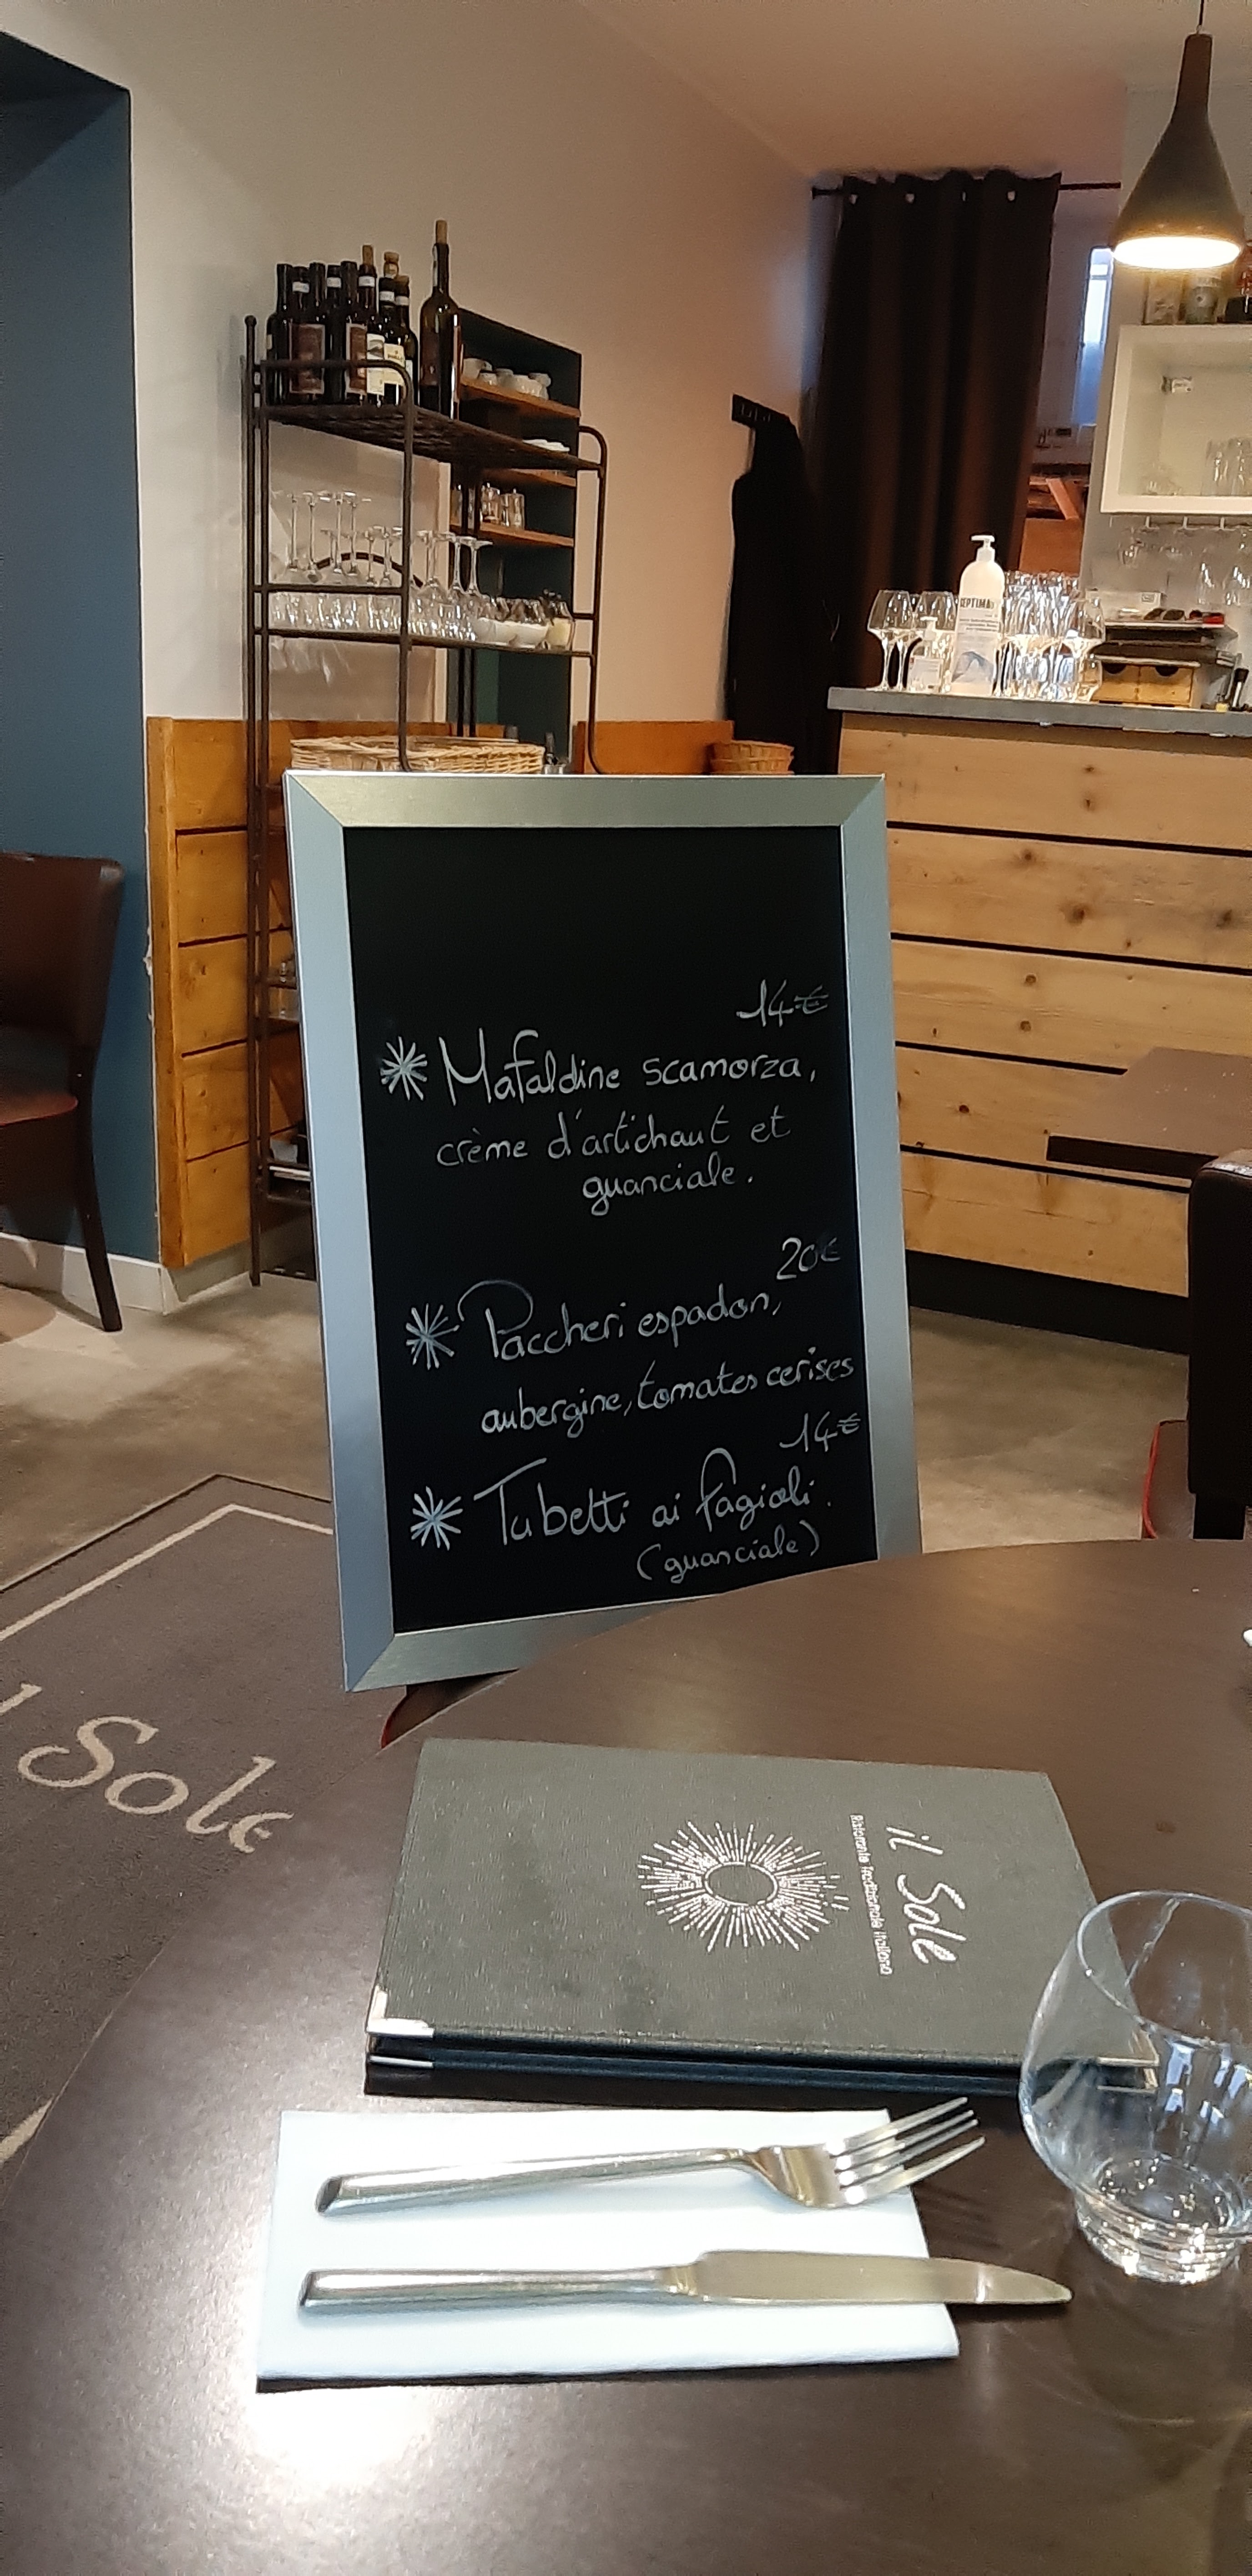 SEPTIMA
14€
Mafaldine scamorza,
crème d'artichaut et
guanciale.
20€
Paccheri espadon,
aubergine, tomates cerises
14€
Tubetti ai fagioli.
(guanciale)
l Sole
il Sole
Ristorante Tradizionale Italiano